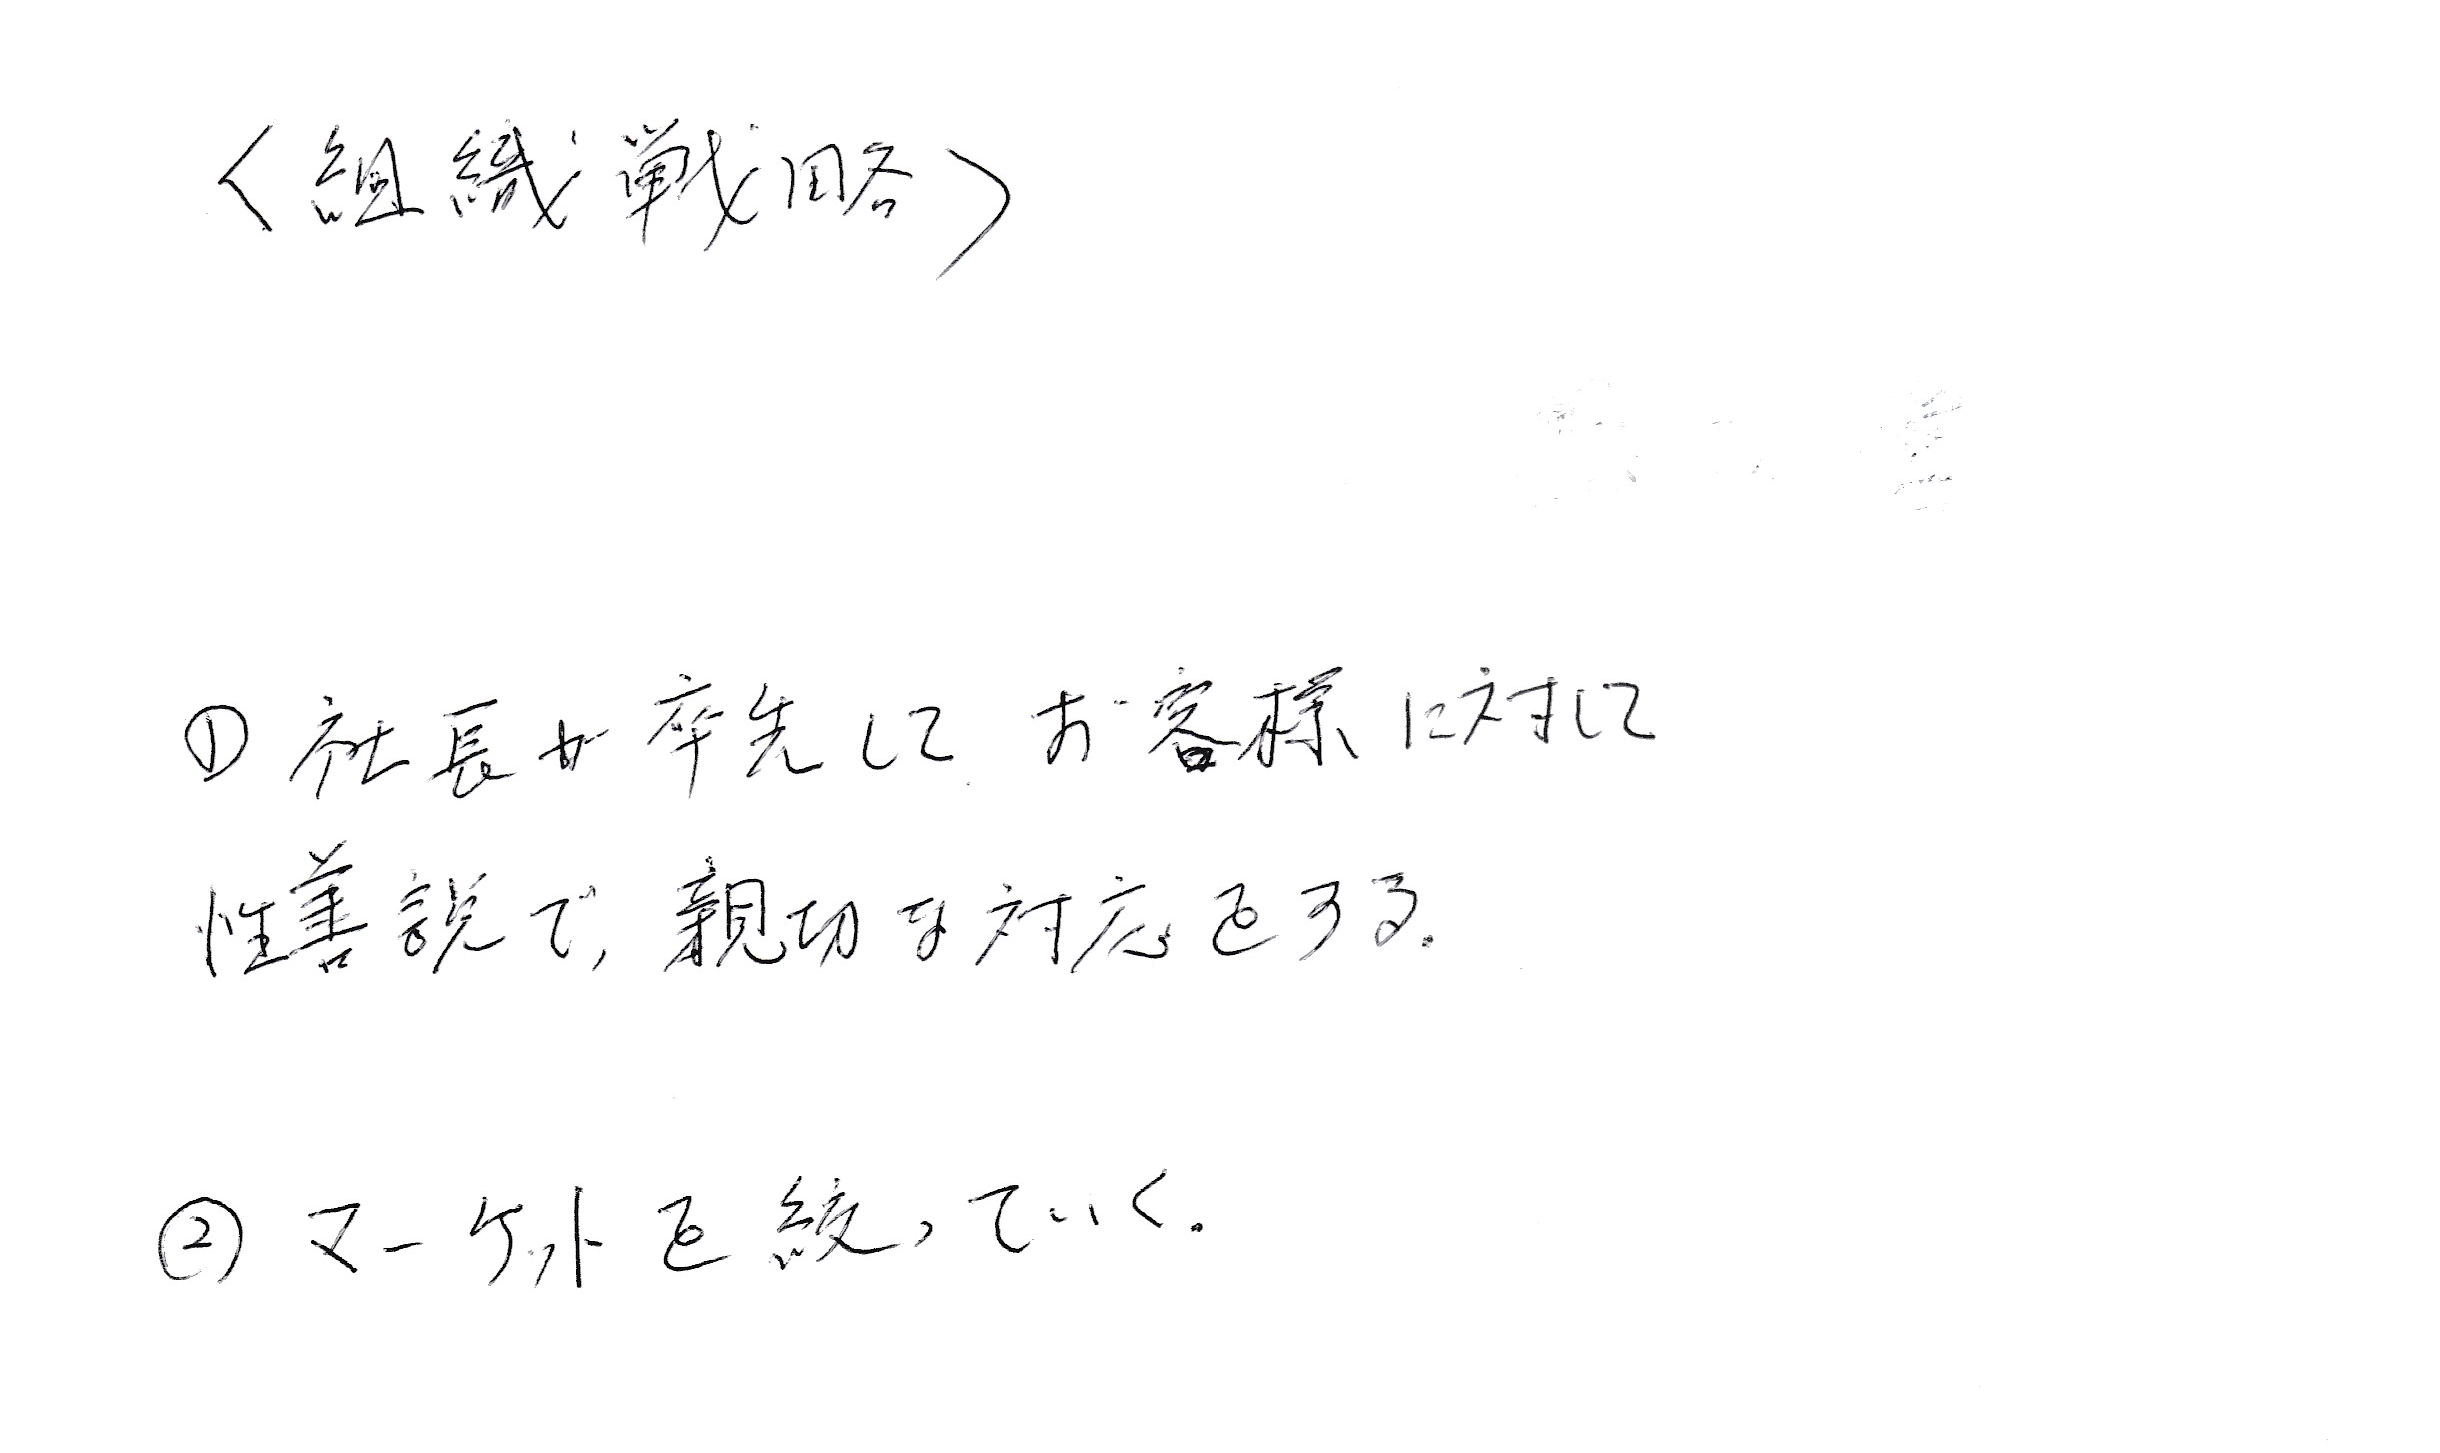 〈組織戦略〉
① 社長が率先して お客様に対して
性善説で, 親切な対応をする.
② マーケットを絞っていく.